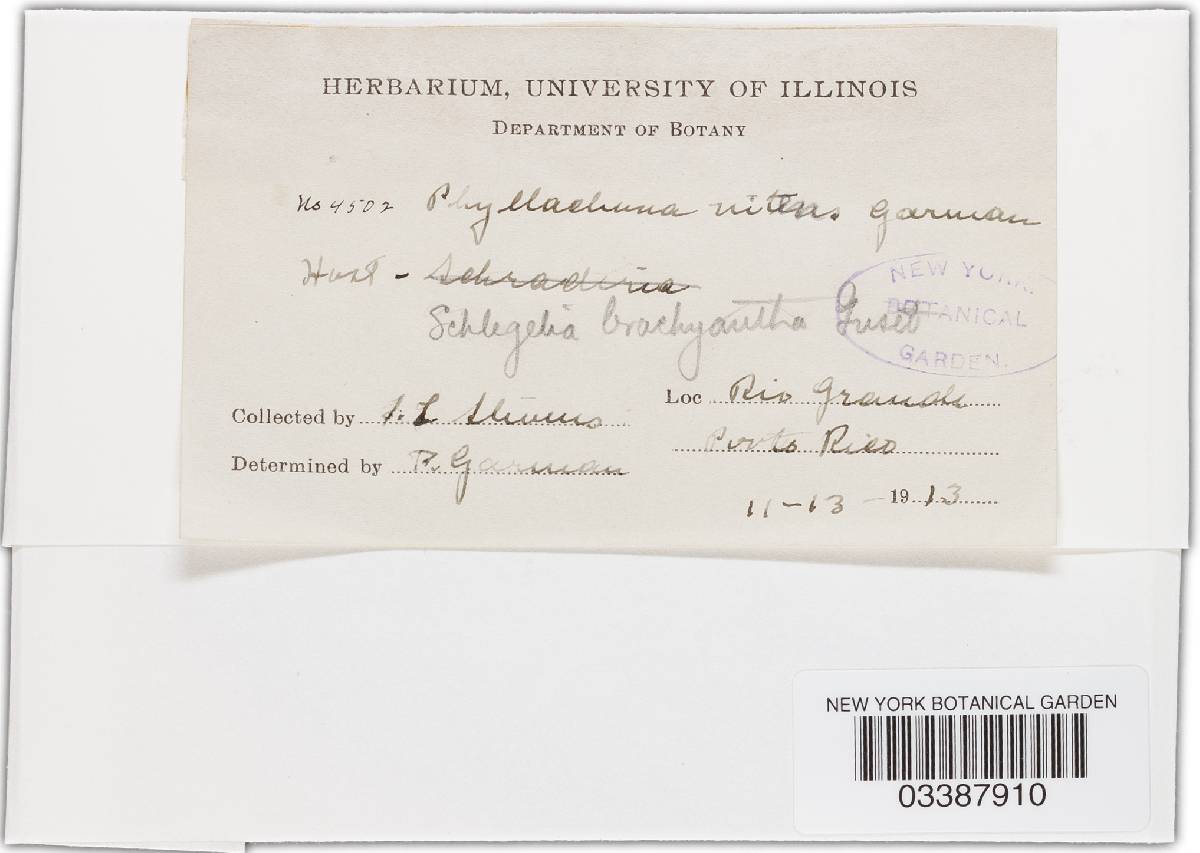 HERBARIUM, UNIVERSITY OF ILLINOIS
DEPARTMENT OF BOTANY
No 4502 Phyllachora nitens Garman
Host - Schradera
Schlegelia brachyantha Griseb
NEW YORK
BOTANICAL
GARDEN.
Collected by F. L. Stevens
Loc Rio Grande
Porto Rico
Determined by P. Garman
11-13-1913
NEW YORK BOTANICAL GARDEN
03387910